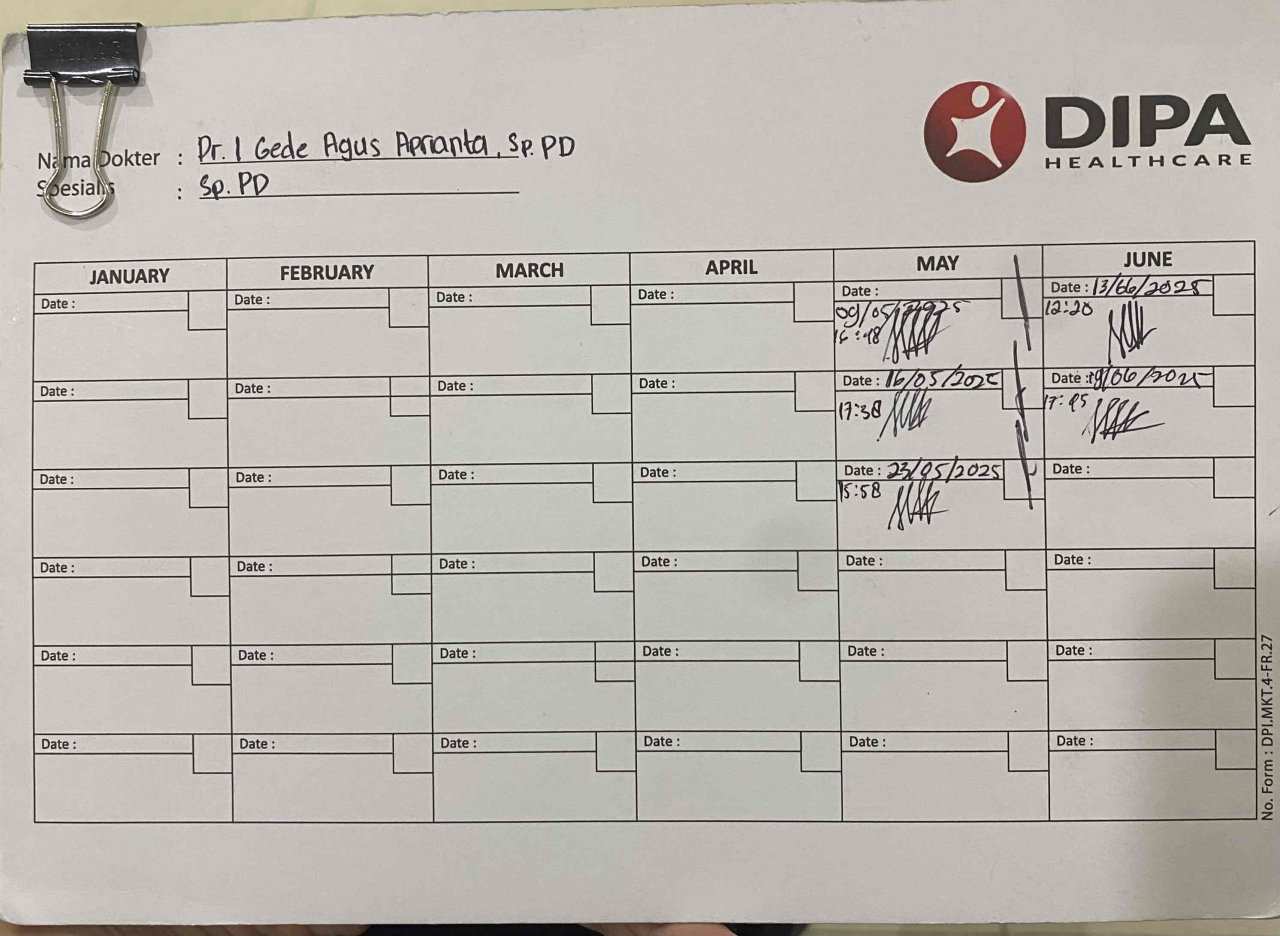 DIPA
HEALTHCARE
Nama Dokter : Dr. I Gede Agus Aprianta, Sp. PD
Spesialis : Sp. PD
JANUARY FEBRUARY MARCH APRIL MAY JUNE
Date : Date : Date : Date : Date : Date : 13/06/2025
09/05/2025 12:20
Date : Date : Date : Date : Date : 16/05/2025 Date : 19/06/2025
17:38 17:45
Date : Date : Date : Date : Date : 23/05/2025 Date :
15:58
Date : Date : Date : Date : Date : Date :
Date : Date : Date : Date : Date : Date :
Date : Date : Date : Date : Date : Date :
No. Form : DPI.MKT.4-FR.27